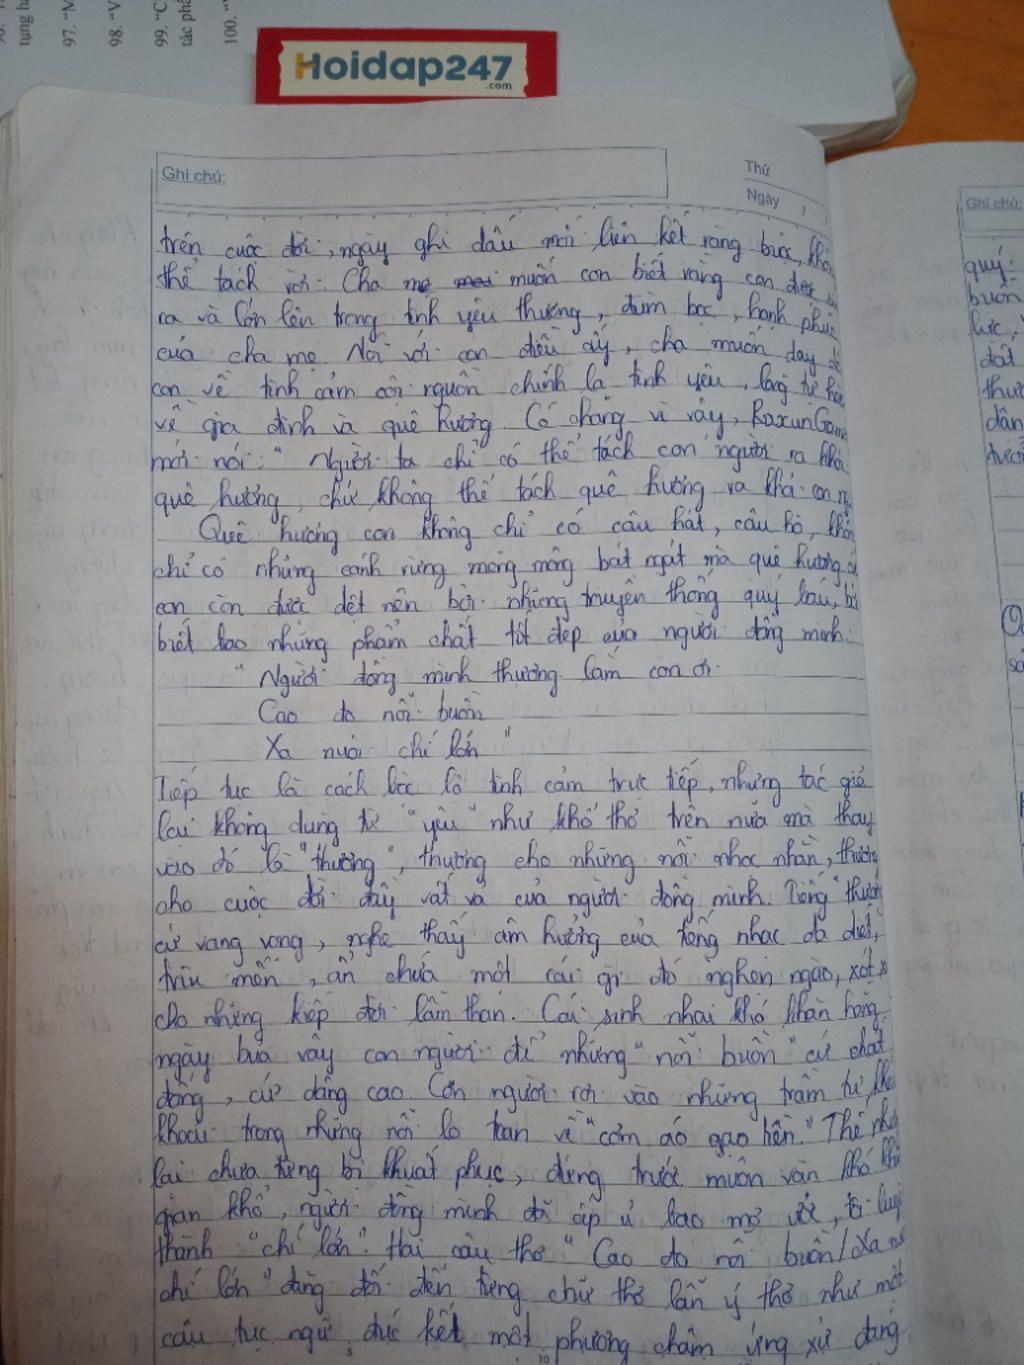 tụng h
97. "M
98. "V
99. "C
tác phẩ
100. "
Hoidap247
.com
Ghi chú:
Thứ
Ngày
trên cuộc đời, ngày ghi dấu mới liên kết ràng buộc, khôn
thể tách rời. Cha mẹ muốn con biết rằng con được
ra và lớn lên trong tình yêu thương, đùm bọc, hạnh phúc
của cha mẹ. Nói với con điều ấy, cha muốn dạy
con về tình cảm cội nguồn chính là tình yêu, lòng tự hào
về gia đình và quê hương. Có chăng vì vậy, RaxunGam
mới nói: "Người ta chỉ có thể tách con người ra khỏi
quê hương, chứ không thể tách quê hương ra khỏi con ng
Quê hương con không chỉ có câu hát, câu hò, khôn
chỉ có những cánh rừng mênh mông bát ngát mà quê hương
con còn được dệt nên bởi những truyền thống quý báu, bở
biết bao những phẩm chất tốt đẹp của người đồng mình.
"Người đồng mình thương lắm con ơi
Cao đo nỗi buồn
Xa nuôi chí lớn"
Tiếp tục là cách bộc lộ tình cảm trực tiếp, nhưng tác giả
lại không dùng từ "yêu" như khổ thơ trên nữa mà thay
vào đó là "thương", thương cho những nỗi nhọc nhằn, thương
cho cuộc đời đầy vất vả của người đồng mình. Tiếng "thương
cứ vang vọng, nghe thấy âm hưởng của tiếng nhạc da diết,
trìu mến, ẩn chứa một cái gì đó nghẹn ngào, xót x
cho những kiếp đời lầm than. Cái sinh nhai khó khăn hằng
ngày bủa vây con người để những "nỗi buồn" cứ chất
đống, cứ dâng cao. Con người rơi vào những trầm tư, khắc
khoải trong những nỗi lo toan về "cơm áo gạo tiền." Thế nhưng
lại chưa từng bị khuất phục, đứng trước muôn vàn khó khă
gian khổ, người đồng mình đã ấp ủ bao mơ ước, tôi luyệ
thành "chí lớn". Hai câu thơ "Cao đo nỗi buồn/Xa nu
chí lớn" đăng đối đến từng chữ thơ lẫn ý thơ như một
câu tục ngữ, đúc kết một phương châm ứng xử đáng
Ghi chú:
quý
buồn
lực
đất
thươ
dân